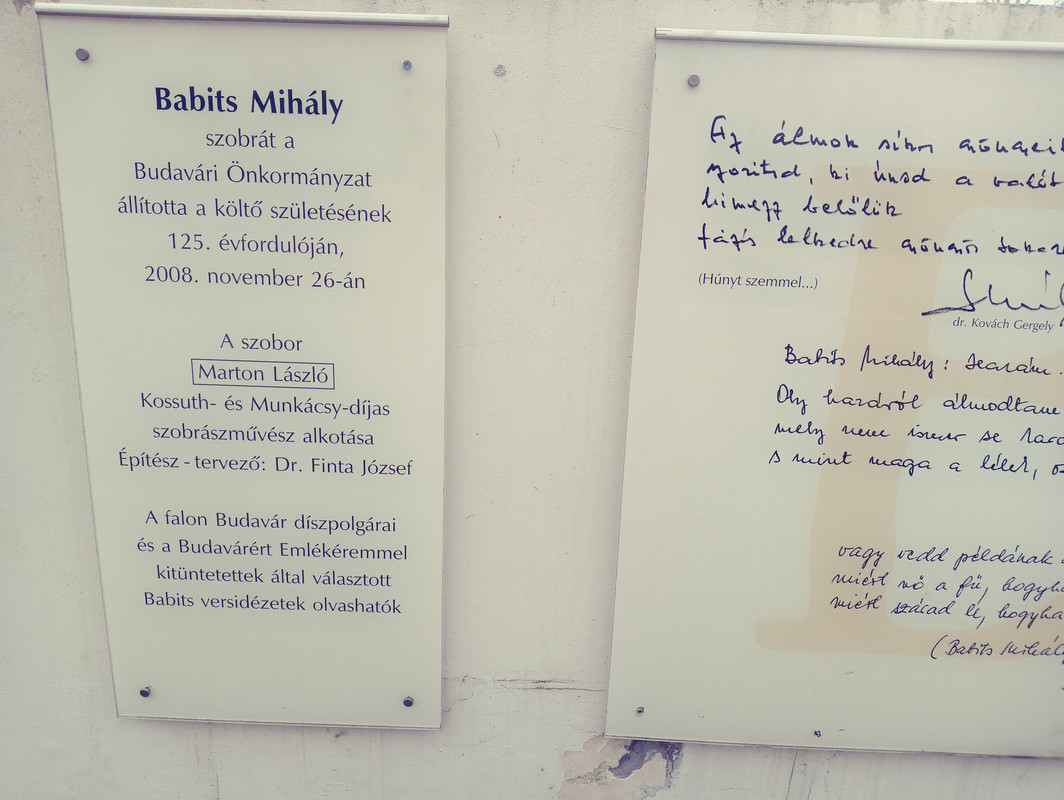 Babits Mihály
szobrát a
Budavári Önkormányzat
állította a költő születésének
125. évfordulóján,
2008. november 26-án
A szobor
Marton László
Kossuth- és Munkácsy-díjas
szobrászművész alkotása
Építész - tervező: Dr. Finta József
A falon Budavár díszpolgárai
és a Budavárért Emlékéremmel
kitüntetettek által választott
Babits versidézetek olvashatók
Az álmok síkos gyöngyeit
szorítsd, ki únod a valót
hímezz belőlük
fázós lelkedre gyöngyös
(Húnyt szemmel...)
dr. Kovách Gergely
Babits Mihály:
Oly hazáról álmodtam
mely nem ismer se
s mint maga a lélek,
vagy vedd példának
miért nő a fű,
miért szárad le,
(Babits